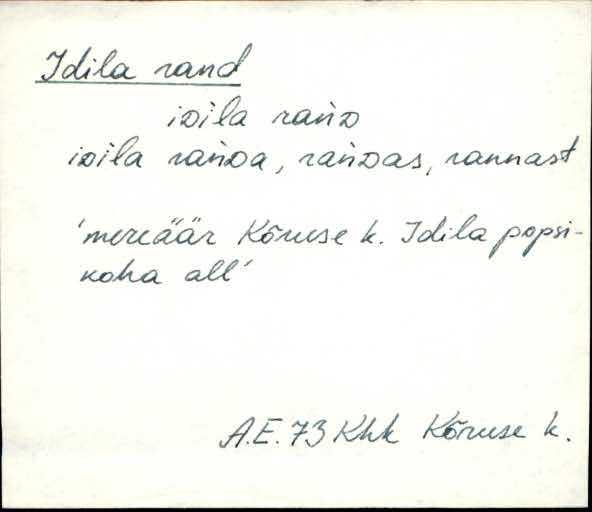 Idila rand
iᴅila rańᴅ
iᴅila rańᴅa, rańᴅas, rannast
'mereäär Kõruse k. Idila popsi-
koha all'
A.E. 73 Khk Kõruse k.